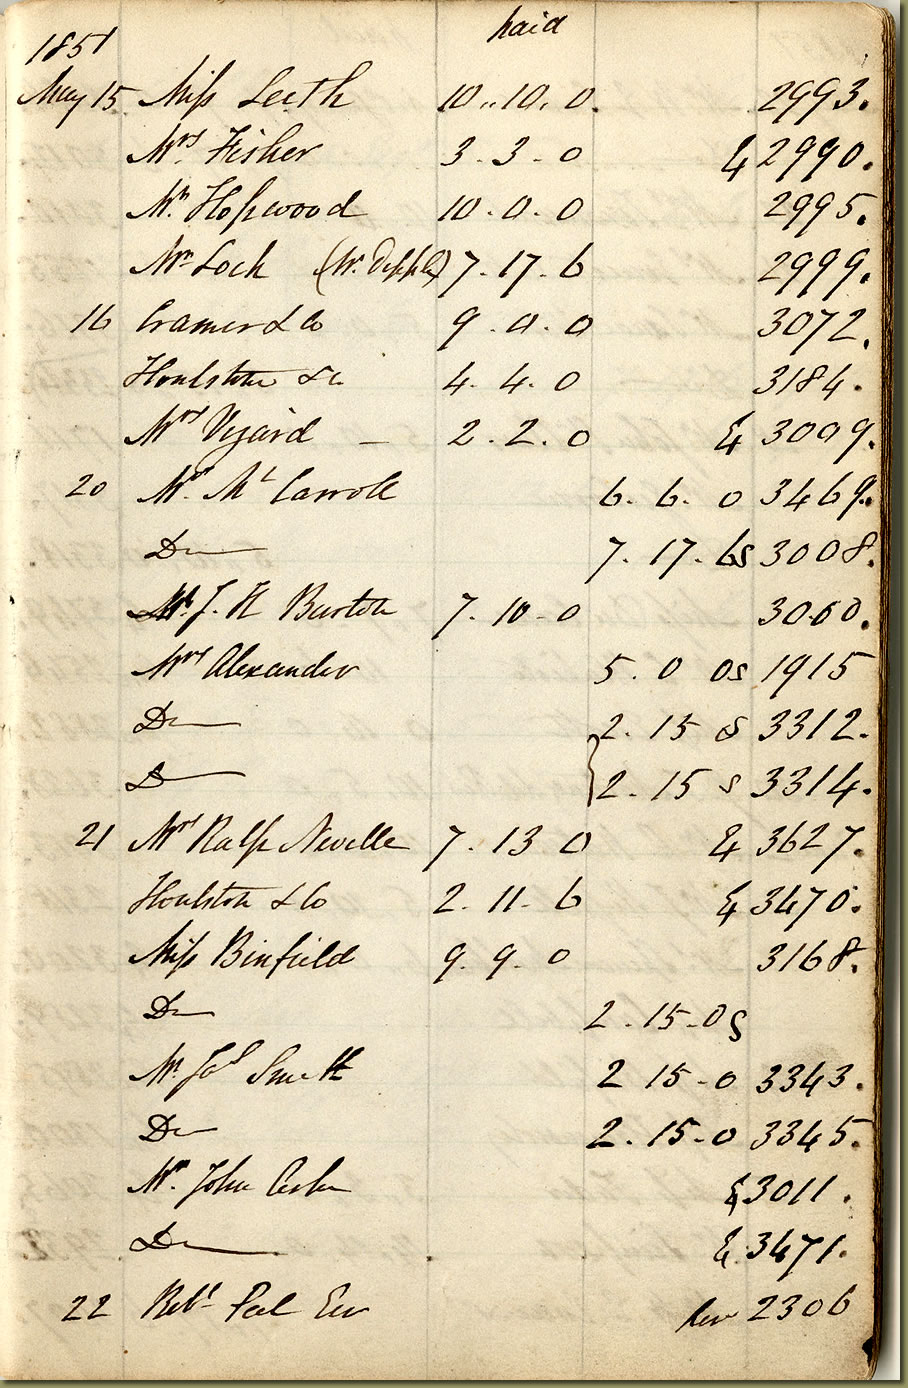 paid
1851
May 15 Miss Leeth 10,,10,0. 2993.
Mrs. Fisher 3.3-0 & 2990.
Mr. Hopwood 10.0.0 2995.
Mr Loch (W. 7.17.6 2999.
16 Cramer & Co 9.0.0 3072.
Houlston & Co 4.4.0 3184.
Mrs Vizard — 2.2.0 & 3009.
20 Mr. Mc Carroll 6.6.0 3469.
Do 7.17.6s 3008.
Mr. J. H Burton 7.10-0 3060.
Mrs Alexander 5.0 0s 1915
Do 2.15 s 3312.
Do 2.15 s 3314.
21 Mrs Ralph Neville 7.13 0 & 3627.
Houlston & Co 2.11.6 & 3470.
Miss Binfield 9.9.0 3168.
Do 2.15-0s
Mr. Jas 2 15-0 3343.
Do 2.15-0 3345.
Mr. John & 3011.
Do & 3471.
22 Robt Peel 2306